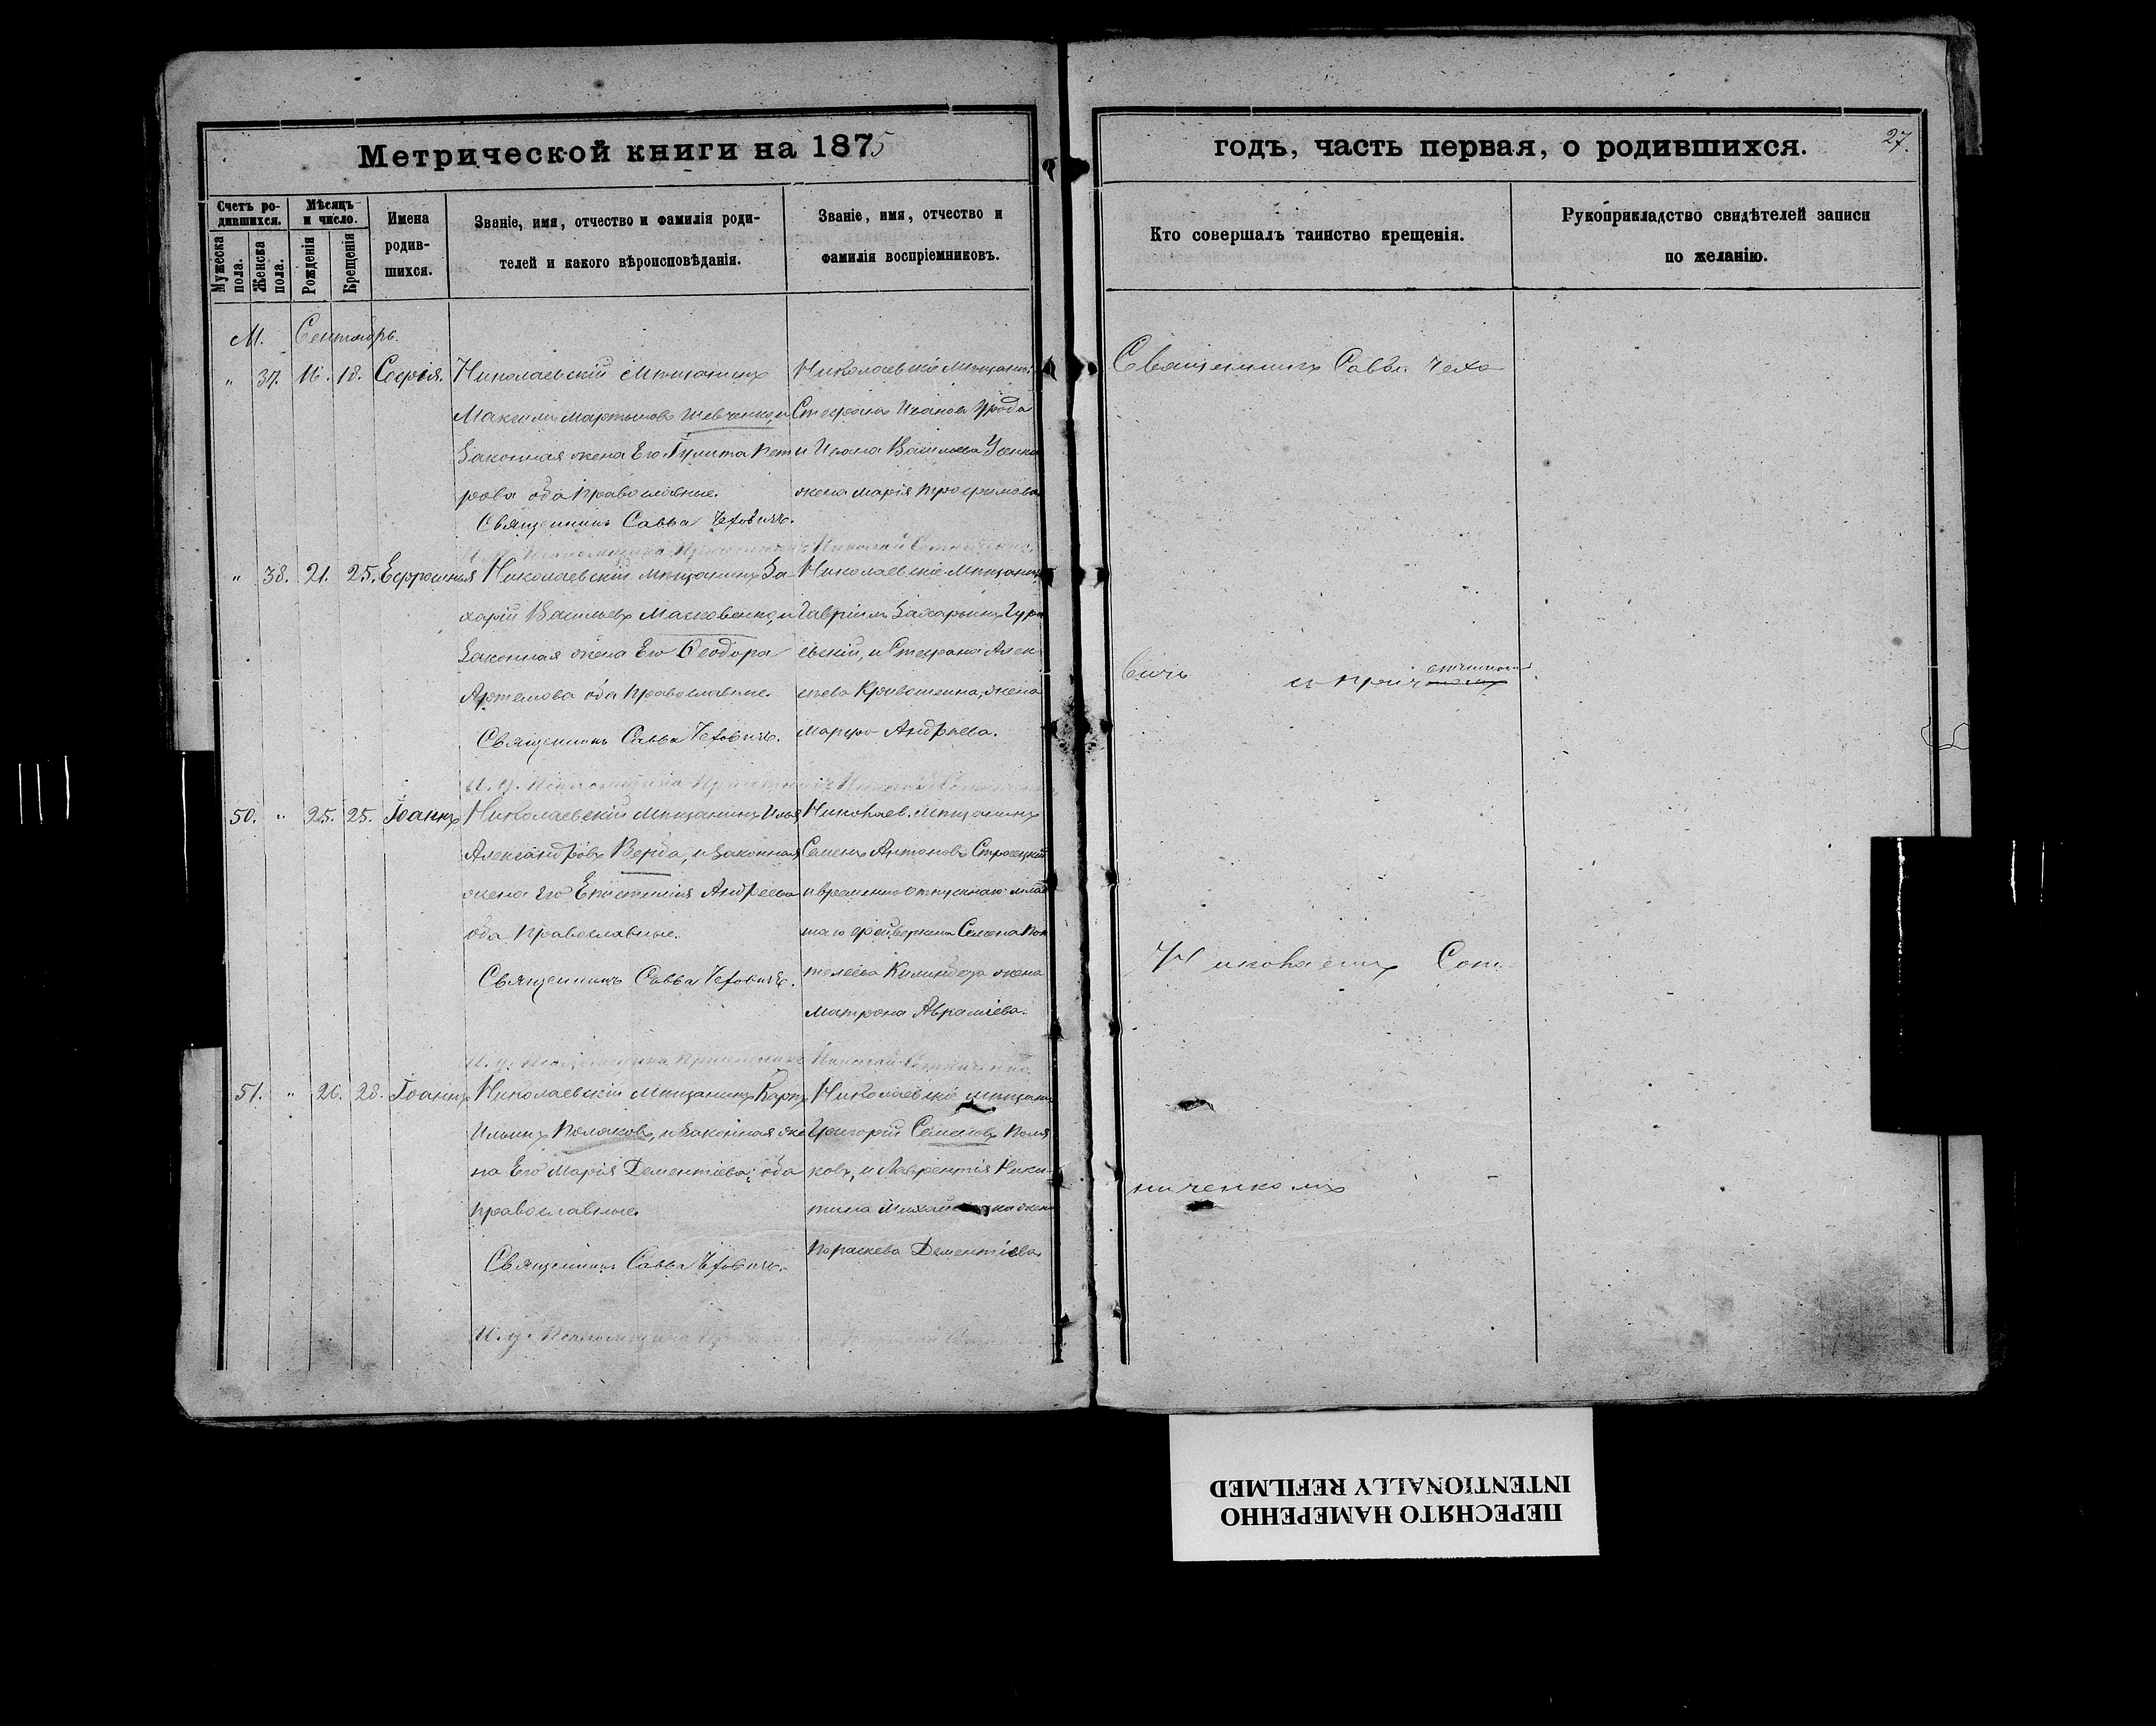 Метрической книги на 1875
годъ, часть первая, о родившихся.
27.
Счетъ ро-
дившихся.
Мужеска
пола.
Женска
пола.
Мѣсяцъ
и число.
Рожденія
Крещенія
Имена
родив-
шихся.
Званіе, имя, отчество и фамилія роди-
телей и какого вѣроисповѣданія.
Званіе, имя, отчество и
фамилія воспріемниковъ.
Кто совершалъ таинство крещенія.
Рукоприкладство свидѣтелей записи
по желанію.
М. Сентябрь.
" 37. 16. 18. Софія.
Николаевскій Мѣщанинъ
Максимъ Мартыновъ Шевченко, и
Законная жена Его Гулита Пет
рова оба православные.
Священникъ Савва Чеховичъ.
Николаевскіе Мѣщане:
Стефанъ Иванов
и Ивана Васильева
жена Марія Трофимова
" 38. 21. 25. Ефросинья
Николаевскій Мѣщанинъ За-
харій Васильевъ Масковенко, и
Законная жена Его Ѳеодора
Артемова оба православные.
Священникъ Савва Чеховичъ.
Николаевскіе Мѣщане
Гавріилъ Захарьинъ Гур
евскій, и Стефана Алек
сѣева Кривошеина, жена
Марфа Андрѣева.
50. " 25. 25. Іоаннъ
Николаевскій Мѣщанинъ Илья
Александровъ Верба, и Законная
жена Его Епистимія Андреева
оба Православные.
Священникъ Савва Чеховичъ.
Николаев. Мѣщанинъ
Семенъ Антоновъ
и временно отпускнаго млад
шаго фейверкера Семена Пан
телеева жена
Матрона Авраміева.
51. " 26. 28. Іоаннъ
Николаевскій Мѣщанинъ Карпъ
Ильинъ Поляковъ, и Законная же
на Его Марія Дементіева; оба
православные.
Священникъ Савва Чеховичъ.
И. д. Псаломщика
Николаевскіе мѣщане
Григорій Семеновъ Поля
ковъ, и Лаврентія Ники-
тина жена
Параскева Дементіева
Священникъ Савва Чехо
вичъ
и прич
Николаемъ Сот
ниченкомъ
ПЕРЕСНЯТО НАМЕРЕННО
INTENTIONALLY REFILMED